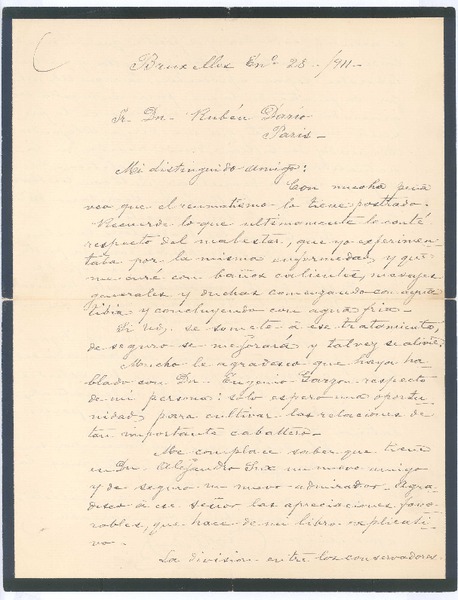 Bruxelles En.º 28 - /911 -
Sr. Dn. Rubén Darío
Paris -
Mi distinguido amigo:
Con mucha pena
veo que el reumatismo lo tiene postrado.
Recuerde lo que ultimamente le conté
respecto del malestar, que yo experimen
taba por la misma enfermedad, y que
me curé con baños calientes, masajes
generales y duchas comenzando con agua
tibia y concluyendo con agua fria. -
Si Ud. se somete á ese tratamiento,
de seguro se mejorará y talvez se alivie.
Mucho le agradezco que haya ha-
blado con Dn. Eugenio Garzon respecto
de mi persona: sólo espero una oportu-
nidad, para cultivar las relaciones de
tan importante caballero. -
Me complace saber que tiene
en Dn. Alejandro Sux un nuevo amigo
y de seguro un nuevo admirador. Agra-
desco á ese señor las apreciaciones favo-
rables, que hace de mi libro explicati-
vo. -
La division entre los conservadores.